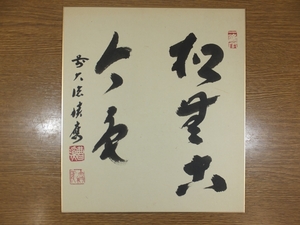 松無古
今色
前大徳